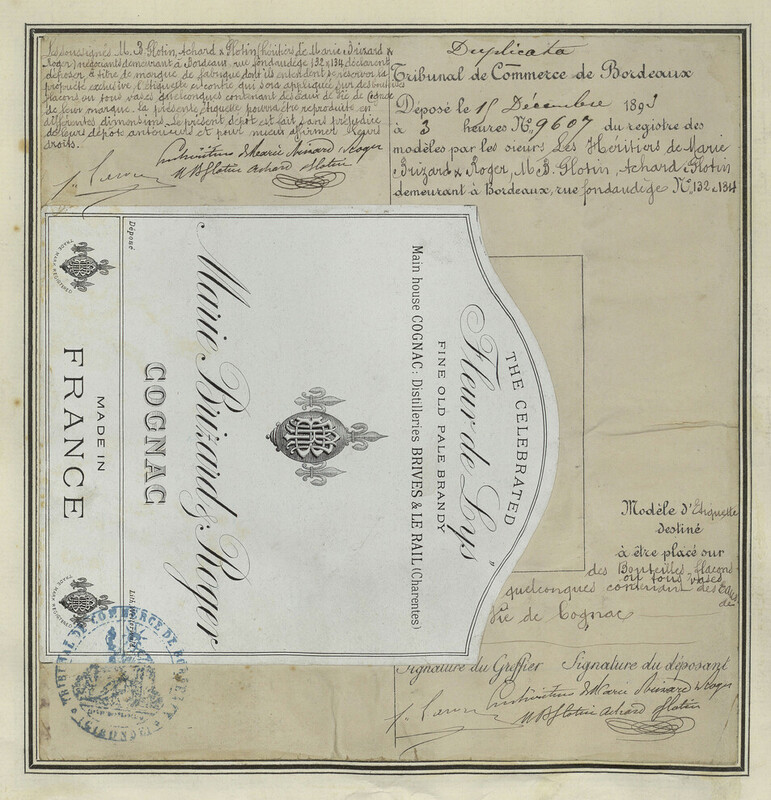 Les soussignés M. B. Glotin, Achard & Glotin (héritiers de Marie Brizard &
Roger) négociants demeurant à Bordeaux, rue fondaudège 132 & 134 déclarent
déposer à titre de marque de fabrique dont ils entendent se réserver la
propriété exclusive, l'étiquette ci contre qui sera appliquée sur des bouteilles
flacons ou tous vases quelconques contenant des eaux de vie de Cognac
de leur marque. La présente étiquette pourra être reproduite en
différentes dimensions. Le présent dépôt est fait sans préjudice
de leurs dépôts antérieurs et pour mieux affirmer leurs
droits.
Les héritiers de Marie Brizard & Roger
M B Glotin Achard Glotin
Duplicata
Tribunal de Commerce de Bordeaux
Déposé le 15 Décembre 1893
à 3 heures N° 9607 du registre des
modèles par les sieurs Les Héritiers de Marie
Brizard & Roger, M. B. Glotin, Achard & Glotin
demeurant à Bordeaux, rue fondaudège N° 132 & 134
THE CELEBRATED
Fleur de Lys
FINE OLD PALE BRANDY
Main house COGNAC: Distilleries BRIVES & LE RAIL (Charentes)
Marie Brizard & Roger
COGNAC
Déposé
TRADE MARK REGISTERED
MADE IN
FRANCE
TRADE MARK REGISTERED
Modèle d'Etiquette
destiné
à être placé sur
des Bouteilles, flacons
ou tous vases
quelconques contenant des Eaux
de
Vie de Cognac
TRIBUNAL DE COMMERCE DE BORDEAUX
(GIRONDE)
Signature du Greffier Signature du déposant
Les héritiers de Marie Brizard & Roger
M B Glotin Achard Glotin